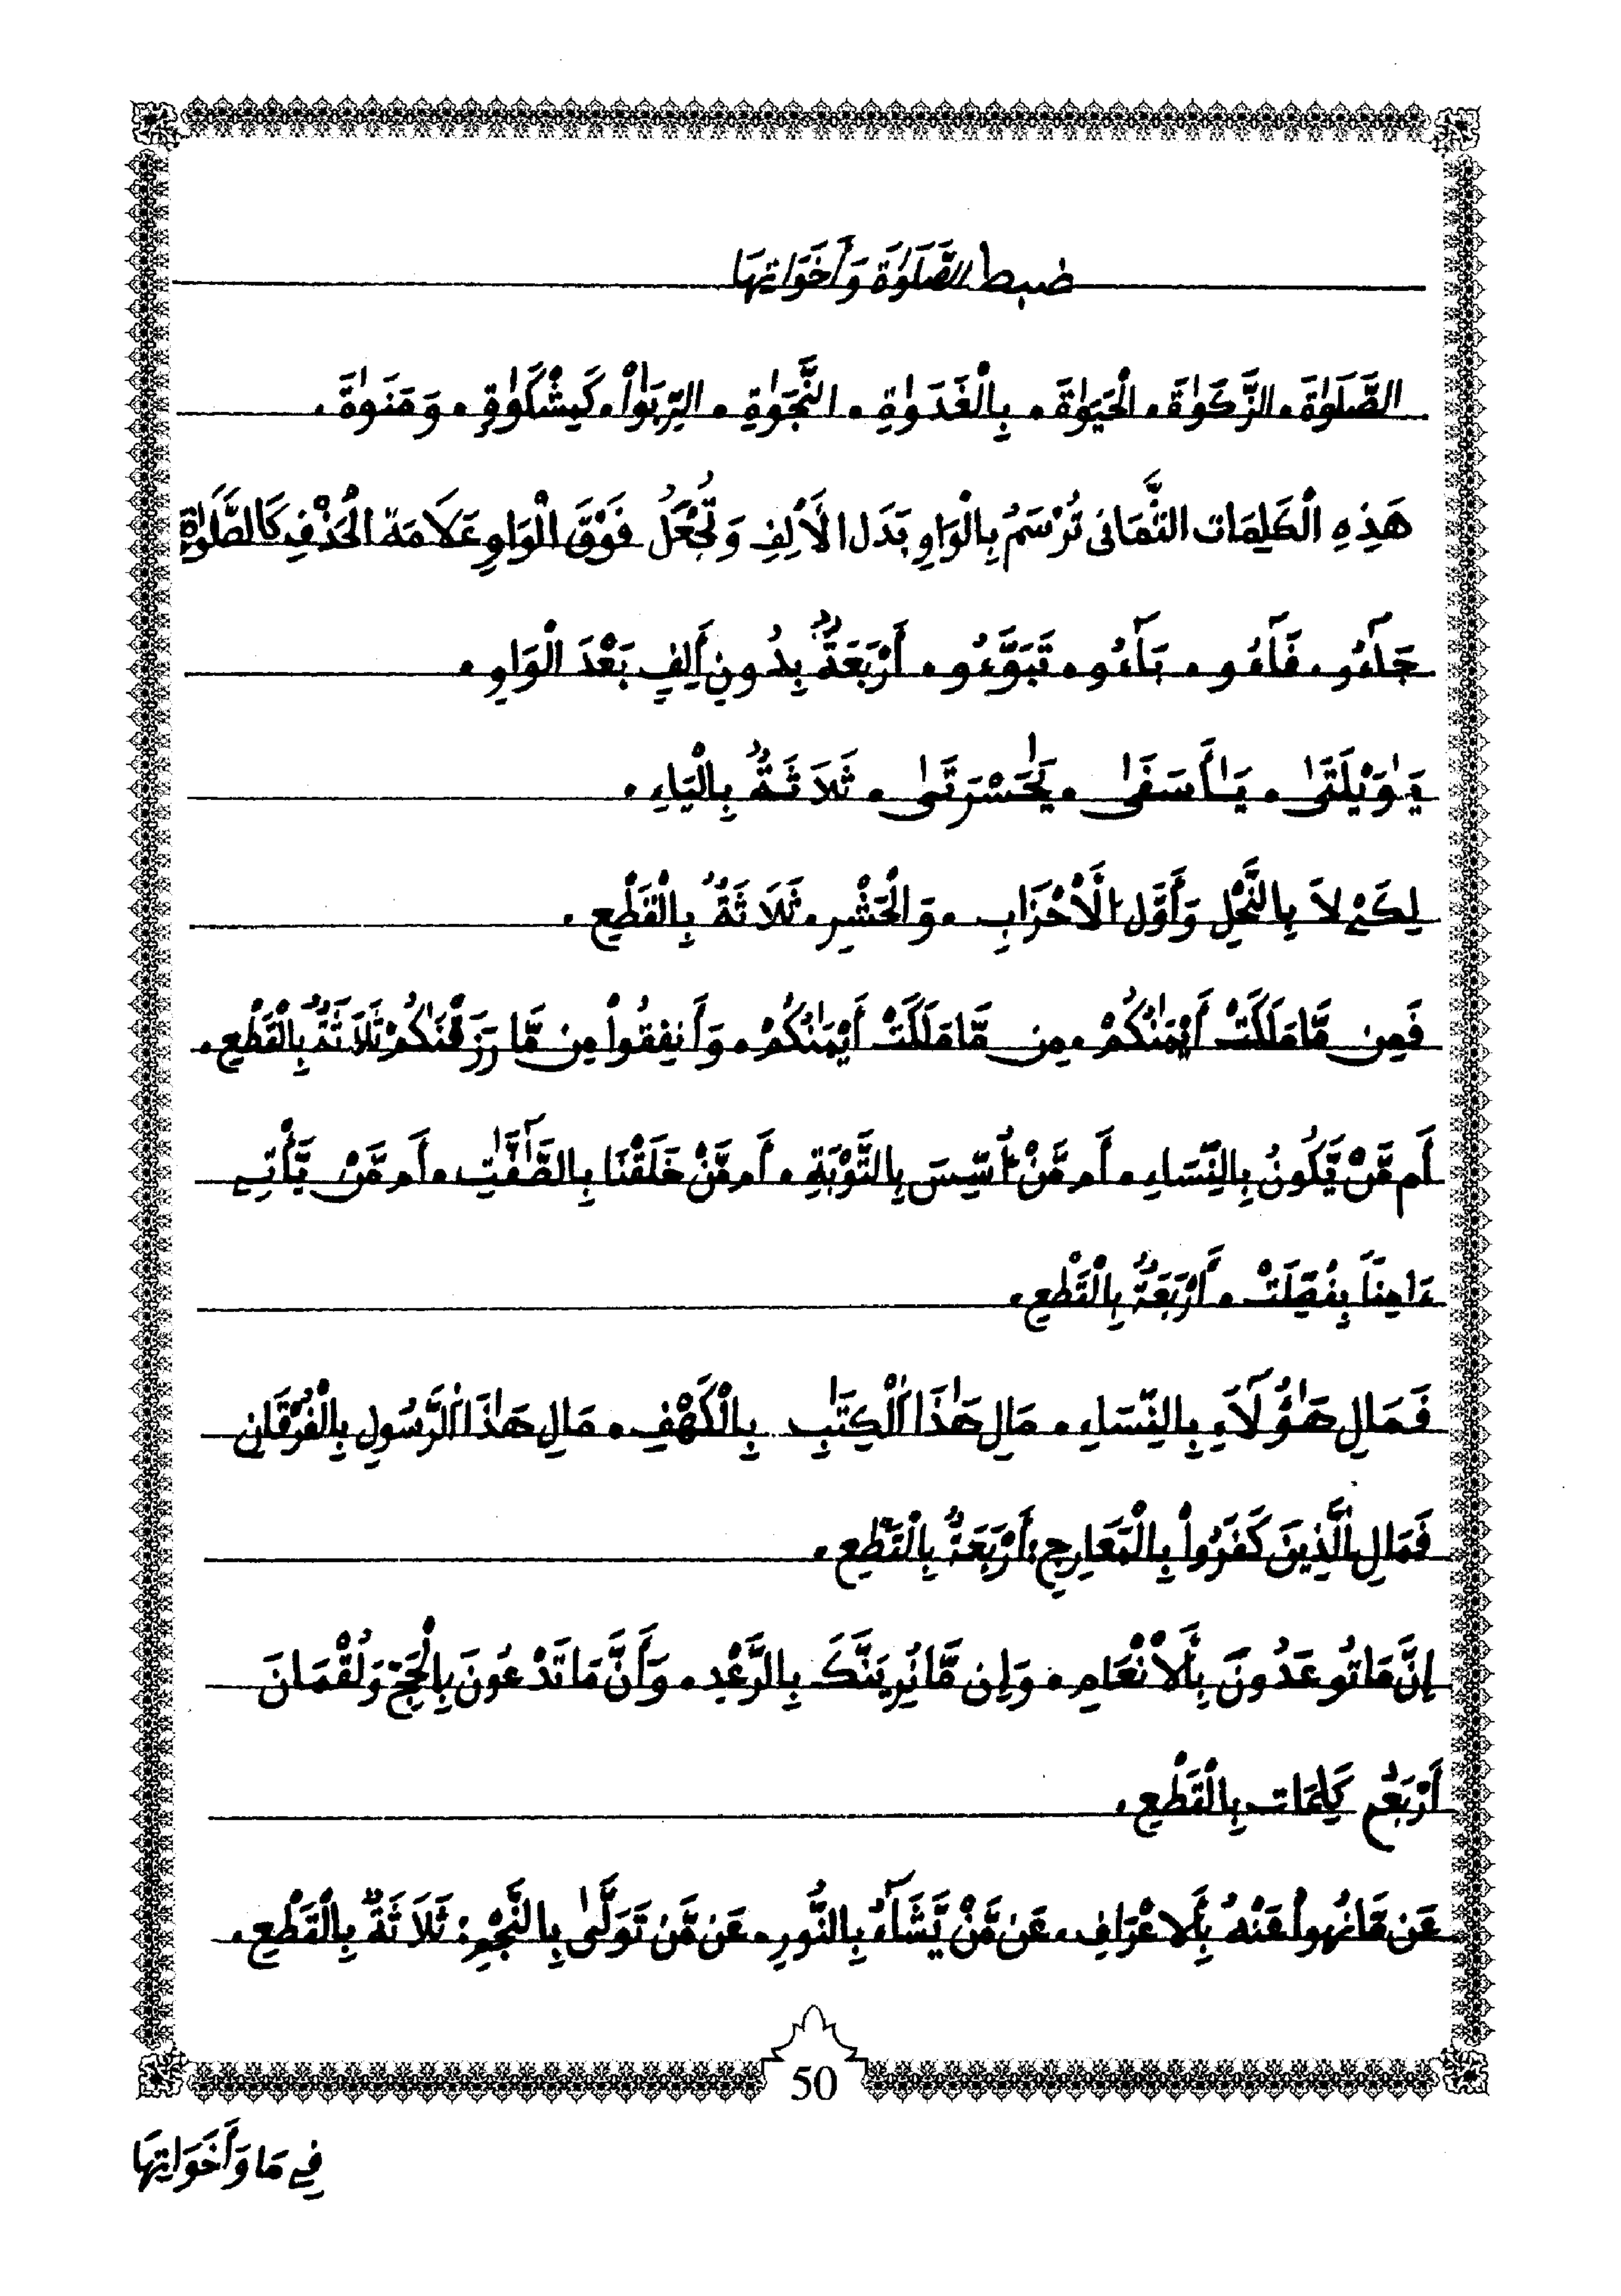 ضبط الصَّلَوٰةِ وَأَخَوَاتِهَا
الصَّلَوٰةَ. الزَّكَوٰةَ. الْحَيَوٰةَ. بِالْغَدَوٰةِ. النَّجَوٰةِ. الرِّبَوٰاْ. كَمِشْكَوٰةٍ. وَمَنَوٰةَ.
هَذِهِ الْكَلِمَات الثَّمَانى تُرْسَمُ بِالْوَاوِ بَدَل الَألِفِ وَتُجْعَلُ فَوْقَ الْوَاوِ عَلَامَةُ الْحَذْفِ كَالصَّلَوٰةِ
جَآءُو. فَآءُو. بَآءُو. تَبَوَّءُو. أَرْبَعَةٌ بِدُونِ أَلِفٍ بَعْدَ الْوَاوِ.
يَٰوَيْلَتَىٰ. يَٰأَسَفَىٰ. يَٰحَسْرَتَىٰ. ثَلَاثَةٌ بِالْيَاءِ.
لِكَيْ لاَ بِالنَّحْلِ وَأَوَّل الْأَحْزَابِ. وَالْحَشْرِ. ثَلَاثَةٌ بِالْقَطْعِ.
فَمِن مَّا مَلَكَتْ أَيْمَٰنُكُمْ. مِن مَّا مَلَكَتْ أَيْمَٰنُكُمْ. وَأَنفِقُواْ مِن مَّا رَزَقْنَٰكُمْ ثَلَاثَةٌ بِالْقَطْعِ.
أَم مَّنْ يَّكُونُ بِالنِّسَاءِ. أَم مَّنْ أُسِّسَ بِالتَّوْبَةِ. أَم مَّنْ خَلَقْنَا بِالصَّٰٓفَّٰتِ. أَم مَّنْ يَّأْتِے
ءَامِناً بِفُصِّلَتْ. أَرْبَعَةٌ بِالْقَطْعِ.
فَمَالِ هَٰؤُلَآءِ بِالنِّسَاءِ. مَالِ هَٰذَا اَلْكِتَٰبِ بِالْكَهْفِ. مَالِ هَٰذَا اَلرَّسُولِ بِالْفُرْقَانِ
فَمَالِ اِلَّذِينَ كَفَرُواْ بِالْمَعَارِجِ: أَرْبَعَةٌ بِالْقَطْعِ.
إِنَّ مَا تُوعَدُونَ بِالَأنْعَامِ. وَإِن مَّا نُرِيَنَّكَ بِالرَّعْدِ. وَأَنَّ مَا تَدْعُونَ بِالْحَجِّ وَلُقْمَانَ
أَرْبَعُ كَلِمَات بِالْقَطْعِ.
عَن مَّا نُهُواْ عَنْهُ بِالَأعْرَافِ. عَن مَّنْ يَّشَآءُ بِالنُّورِ. عَن مَّن تَوَلَّىٰ بِالنَّجْمِ: ثَلَاثَةٌ بِالْقَطْعِ.
50
فِے مَا وَأَخَوَاتِهَا